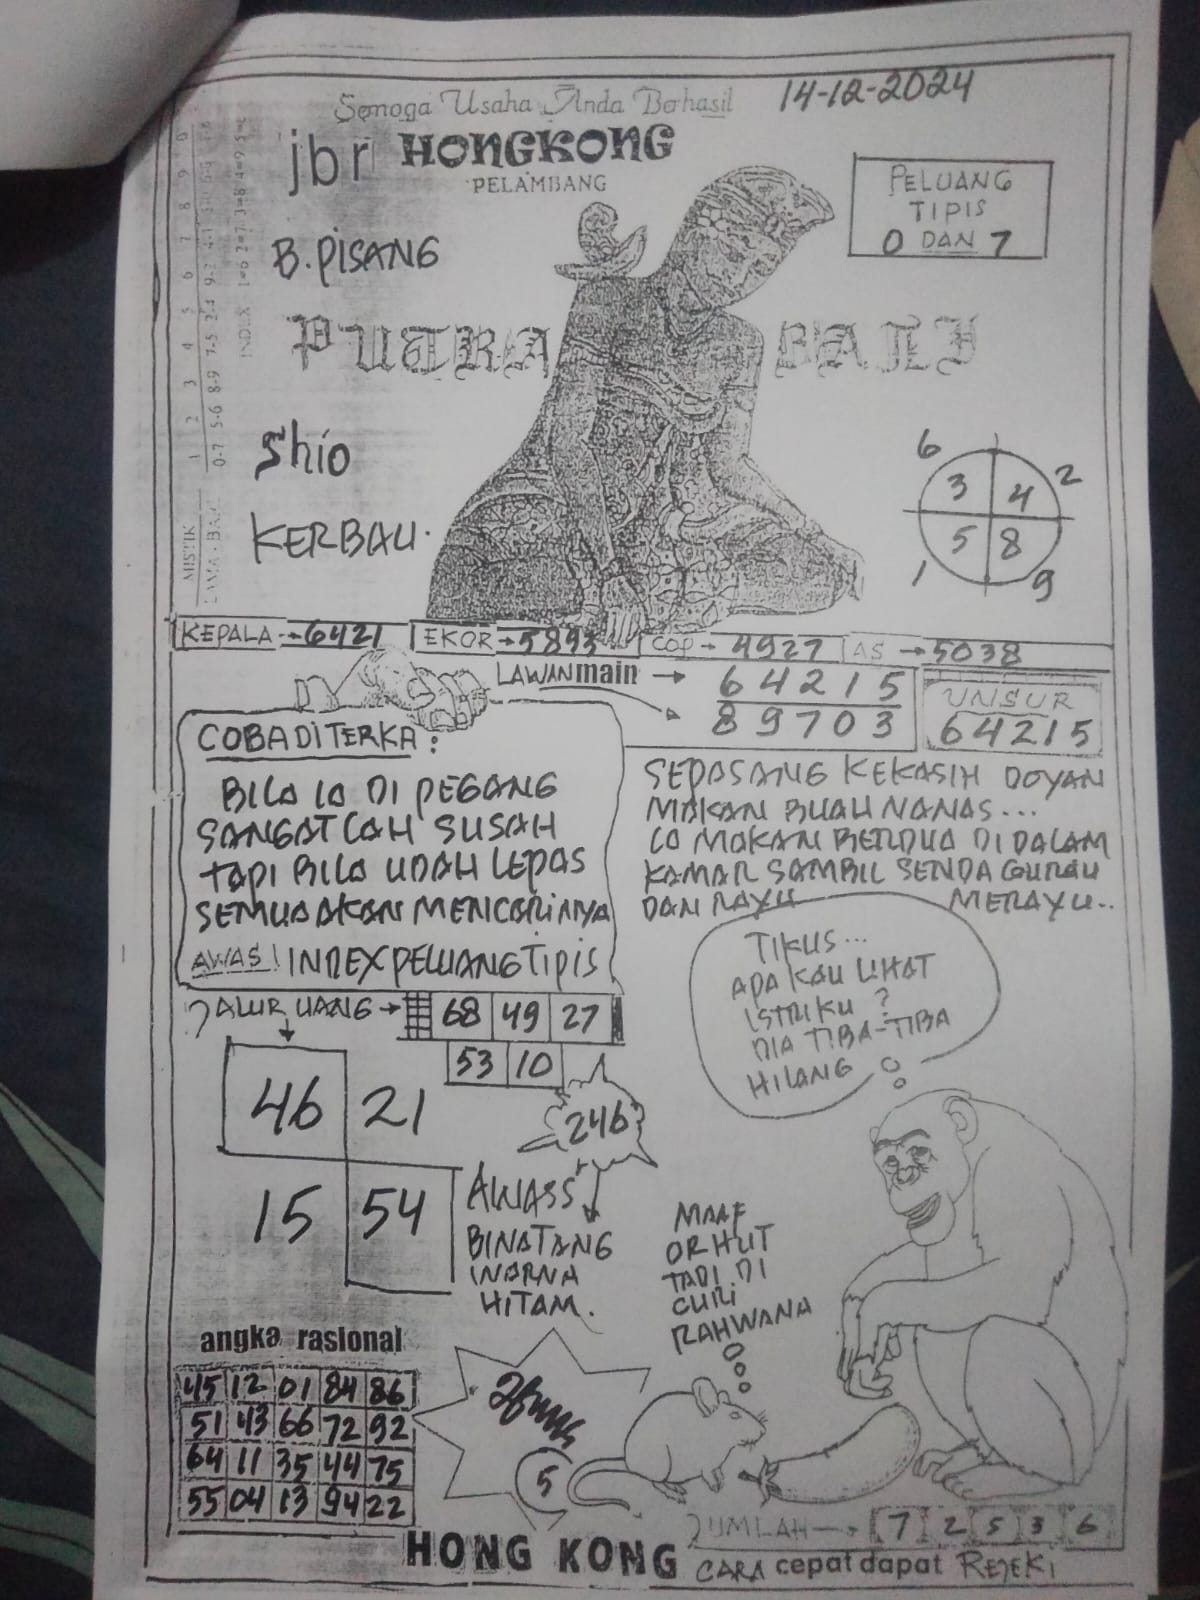 Semoga Usaha Anda Berhasil
14-12-2024
jbr HONGKONG
PELAMBANG
PELUANG
TIPIS
0 DAN 7
B. PISANG
PUTRA BALI
Shio
KERBAU.
6 2
3 4
5 8
1 9
MISTIK 1 2 3 4 5 6 7 8 9 0
LAMA · BARU 0-7 5-6 8-9 7-5 2-4 9-2
INDEX 1=6 2=7 3=8 4=9 5=0
KEPALA → 6421 EKOR → 5893 COP → 4927 AS → 5038
LAWAN main → 64215
89703
UNSUR
64215
COBA DITERKA :
BILA IA DI PEGANG
SANGATLAH SUSAH
TAPI BILA UDAH LEPAS
SEMUA AKAN MENCARINYA
AWAS! INDEX PELUANG TIPIS
SEPASANG KEKASIH DOYAN
MAKAN BUAH NANAS...
LO MAKAN BERDUA DI DALAM
KAMAR SAMBIL SENDA GURAU
DAN RAYU MERAYU..
JALUR UANG → 68 49 27
53 10
46 21
15 54
246
AWASS
BINATANG
WARNA
HITAM.
TIKUS...
APA KAU LIHAT
ISTRIKU ?
DIA TIBA-TIBA
HILANG
MAAF
ORHUT
TADI DI
CURI
RAHWANA
angka rasional
45 12 01 84 86
51 43 66 72 92
64 11 35 44 75
55 04 13 94 22
5
JUMLAH → 7 2 5 3 6
HONG KONG CARA cepat dapat REJEKI